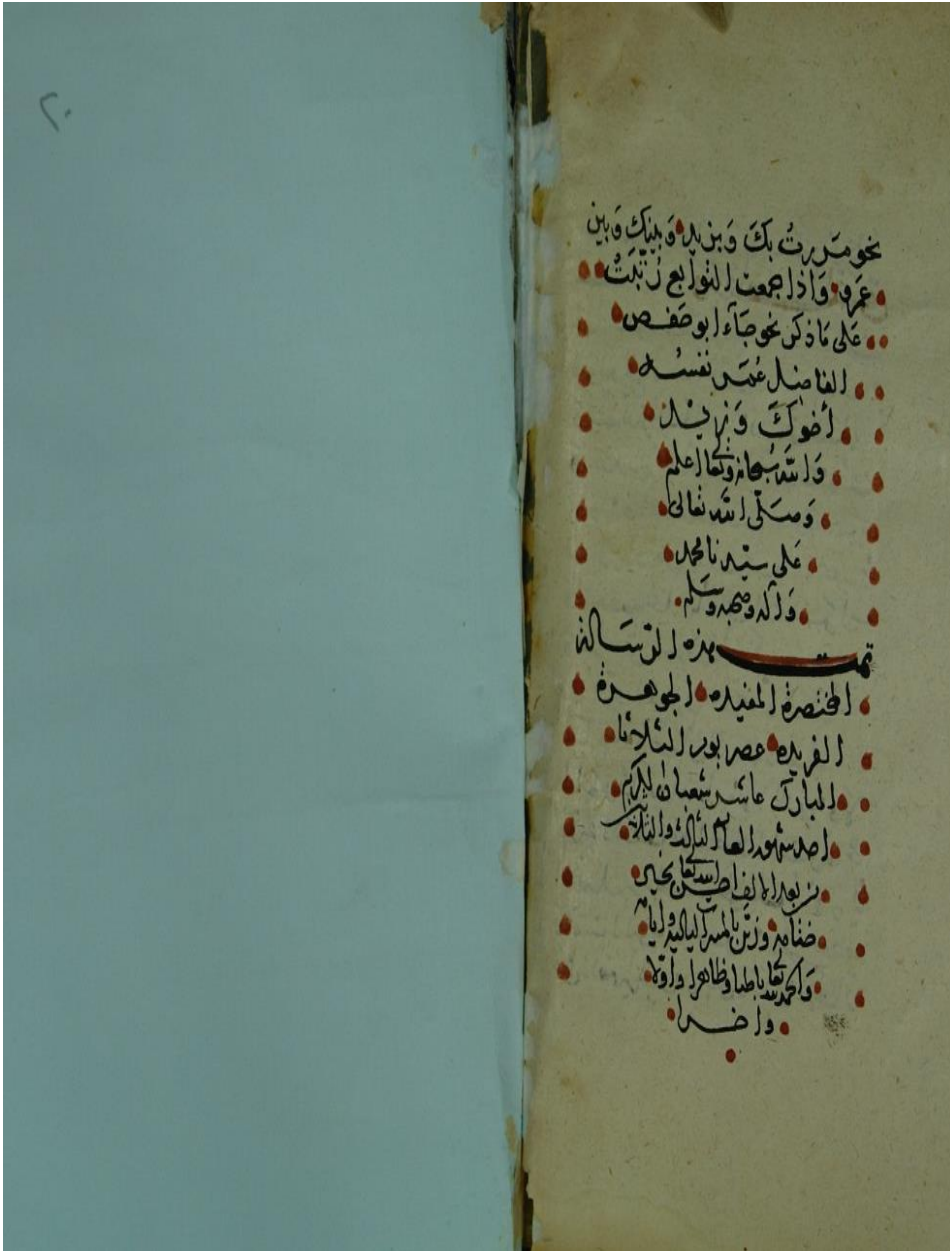 نحو مَررتُ بكَ وَبزيد وَبينك وَبين
عَمرو وَاذا اجمعت التوابع رُتّبَتْ
عَلى مَا ذكر نحو جَآء ابو حَفص
الفاضل عُمَر نفسُه
أخوكَ وَزيدٌ
وَاللّه سُبحانه وتعالى اعلم
وَصَلّى اللّه تعالى
عَلى سيّدنا محمد
وَآله وصحبه وسَلم
تمت هذه الرسَالة
المختصرة المفيده الجوهرة
الفريده عصر يوم الثلاثا
المبارك عاشر شعبان المكرم
احد شهور العام الثالث والثلاثين
من بعد الالف احسن الله تعالى بخير
ختامه وزيّن بالمسرات لياليه وايامه
وَالحمد لله تعالى باطنا وظاهرا واولا
واخرا
٢٠